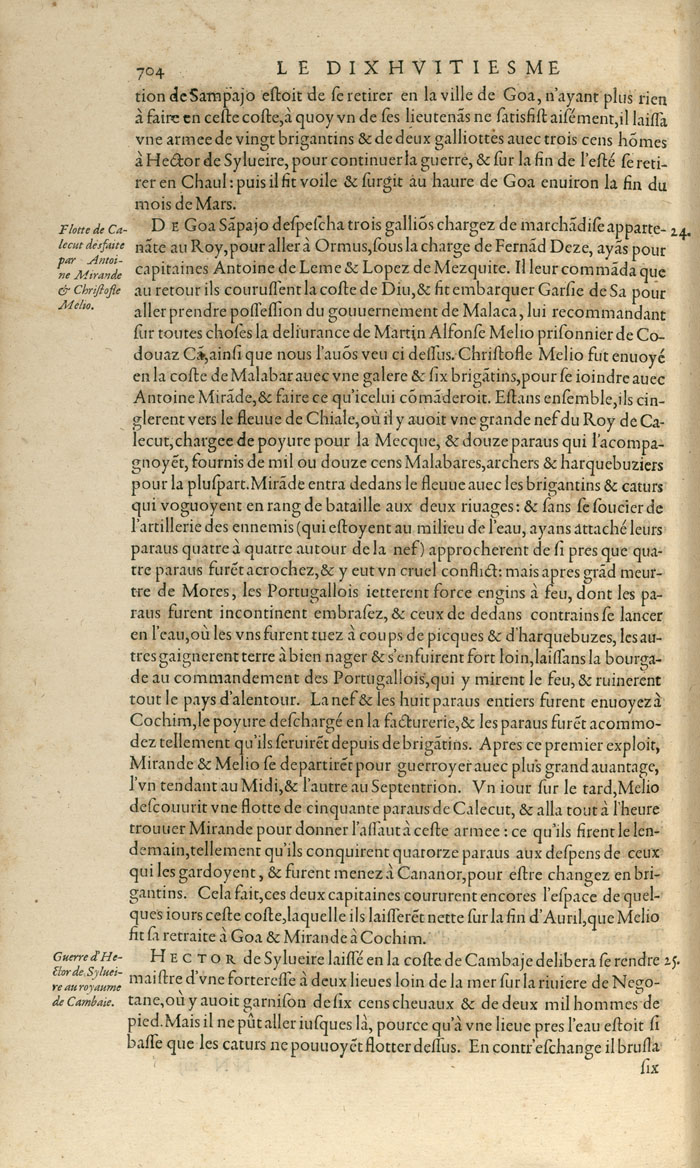 704
LE DIXHVITIESME
tion de Sampajo eſtoit de ſe retirer en la ville de Goa, n'ayant plus rien
à faire en ceſte coſte, à quoy vn de ſes lieutenãs ne ſatisfiſt aiſément, il laiſſa
vne armee de vingt brigantins & de deux galliottes auec trois cens hõmes
à Hector de Sylueire, pour continuer la guerre, & ſur la fin de l'eſté ſe reti-
rer en Chaul: puis il fit voile & ſurgit au haure de Goa enuiron la fin du
mois de Mars.
Flotte de Ca-
lecut desfaite
par Antoi-
ne Mirande
& Chriſtofle
Melio.
DE Goa Sãpajo deſpeſcha trois galliõs chargez de marchãdiſe apparte- 24.
nãte au Roy, pour aller à Ormus, ſous la charge de Fernãd Deze, ayãs pour
capitaines Antoine de Leme & Lopez de Mezquite. Il leur commãda que
au retour ils couruſſent la coſte de Diu, & fit embarquer Garſie de Sa pour
aller prendre poſſeſſion du gouuernement de Malaca, lui recommandant
ſur toutes choſes la deliurance de Martin Alfonſe Melio priſonnier de Co-
douaz Cã, ainſi que nous l'auõs veu ci deſſus. Chriſtofle Melio fut enuoyé
en la coſte de Malabar auec vne galere & ſix brigãtins, pour ſe ioindre auec
Antoine Mirãde, & faire ce qu'icelui cõmãderoit. Eſtans enſemble, ils cin-
glerent vers le fleuue de Chiale, où il y auoit vne grande nef du Roy de Ca-
lecut, chargee de poyure pour la Mecque, & douze paraus qui l'acompa-
gnoyẽt, fournis de mil ou douze cens Malabares, archers & harquebuziers
pour la pluſpart. Mirãde entra dedans le fleuue auec les brigantins & caturs
qui voguoyent en rang de bataille aux deux riuages: & ſans ſe ſoucier de
l'artillerie des ennemis (qui eſtoyent au milieu de l'eau, ayans attaché leurs
paraus quatre à quatre autour de la nef) approcherent de ſi pres que qua-
tre paraus furẽt acrochez, & y eut vn cruel conflict: mais apres grãd meur-
tre de Mores, les Portugallois ietterent force engins à feu, dont les pa-
raus furent incontinent embraſez, & ceux de dedans contrains ſe lancer
en l'eau, où les vns furent tuez à coups de picques & d'harquebuzes, les au-
tres gaignerent terre à bien nager & s'enfuirent fort loin, laiſſans la bourga-
de au commandement des Portugallois, qui y mirent le feu, & ruinerent
tout le pays d'alentour. La nef & les huit paraus entiers furent enuoyez à
Cochim, le poyure deſchargé en la facturerie, & les paraus furẽt acommo-
dez tellement qu'ils ſeruirẽt depuis de brigãtins. Apres ce premier exploit,
Mirande & Melio ſe departirẽt pour guerroyer auec plus grand auantage,
l'vn tendant au Midi, & l'autre au Septentrion. Vn iour ſur le tard, Melio
deſcouurit vne flotte de cinquante paraus de Calecut, & alla tout à l'heure
trouuer Mirande pour donner l'aſſaut à ceſte armee: ce qu'ils firent le len-
demain, tellement qu'ils conquirent quatorze paraus aux deſpens de ceux
qui les gardoyent, & furent menez à Cananor, pour eſtre changez en bri-
gantins. Cela fait, ces deux capitaines coururent encores l'eſpace de quel-
ques iours ceſte coſte, laquelle ils laiſſerẽt nette ſur la fin d'Auril, que Melio
fit ſa retraite à Goa & Mirande à Cochim.
Guerre d'He-
ctor de Syluei-
re au royaume
de Cambaie.
HECTOR de Sylueire laiſſé en la coſte de Cambaje delibera ſe rendre 25.
maiſtre d'vne fortereſſe à deux lieues loin de la mer ſur la riuiere de Nego-
tane, où y auoit garniſon de ſix cens cheuaux & de deux mil hommes de
pied. Mais il ne pût aller iuſques là, pource qu'à vne lieue pres l'eau eſtoit ſi
baſſe que les caturs ne pouuoyẽt flotter deſſus. En contr'eſchange il bruſla
ſix